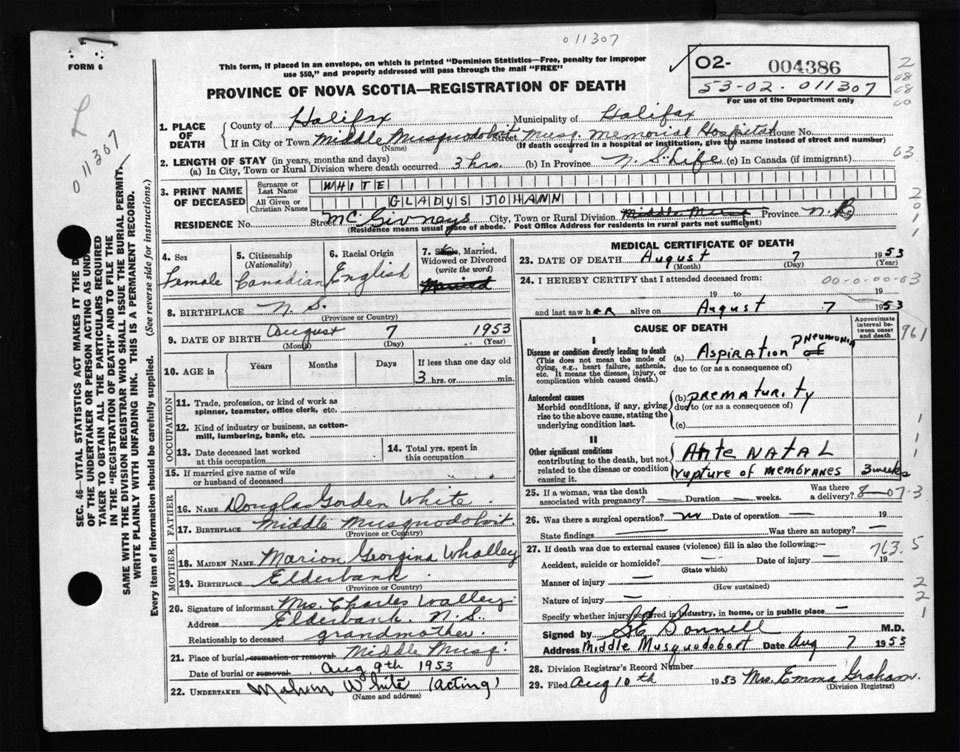 011307
FORM 6
This form, if placed in an envelope, on which is printed "Dominion Statistics—Free, penalty for improper
use $50," and properly addressed will pass through the mail "FREE"
02- 004386
53-02. 011307
For use of the Department only
PROVINCE OF NOVA SCOTIA—REGISTRATION OF DEATH
011307
1. PLACE OF DEATH
County of Halifax Municipality of Halifax
If in City or Town Middle Musquodoboit Street Musq. Memorial Hospital House No.
(Name) (If death occurred in a hospital or institution, give the name instead of street and number)
2. LENGTH OF STAY (in years, months and days)
(a) In City, Town or Rural Division where death occurred 3 hrs. (b) In Province N.S. Life (c) In Canada (if immigrant)
3. PRINT NAME OF DECEASED
Surname or Last Name WHITE
All Given or Christian Names GLADYS JOHANN
RESIDENCE No. Street McGivneys City, Town or Rural Division Middle Musq Province N.B
(Residence means usual place of abode. Post Office Address for residents in rural parts not sufficient)
SEC. 46—VITAL STATISTICS ACT MAKES IT THE D
OF THE UNDERTAKER OR PERSON ACTING AS UND
TAKER TO OBTAIN ALL THE PARTICULARS REQUIRED
IN THE "REGISTRATION OF DEATH" AND TO FILE THE
SAME WITH THE DIVISION REGISTRAR WHO SHALL ISSUE THE BURIAL PERMIT.
WRITE PLAINLY WITH UNFADING INK. THIS IS A PERMANENT RECORD.
Every item of information should be carefully supplied. (See reverse side for instructions.)
4. Sex Female
5. Citizenship (Nationality) Canadian
6. Racial Origin English
7. Single, Married, Widowed or Divorced (write the word) Married
8. BIRTHPLACE N.S.
(Province or Country)
9. DATE OF BIRTH August 7 1953
(Month) (Day) (Year)
10. AGE in Years Months Days If less than one day old
3 hrs. or min.
OCCUPATION
11. Trade, profession, or kind of work as
spinner, teamster, office clerk, etc.
12. Kind of industry or business, as cotton-
mill, lumbering, bank, etc.
13. Date deceased last worked
at this occupation
14. Total yrs. spent in
this occupation
15. If married give name of wife
or husband of deceased
FATHER
16. Name Douglas Gorden White
17. Birthplace Middle Musquodoboit
(Province or Country)
MOTHER
18. MAIDEN NAME Marion Georgina Whalley
19. BIRTHPLACE Elderbank
(Province or Country)
20. Signature of informant Mrs. Charles Walley
Address Elderbank N.S.
Relationship to deceased grandmother
21. Place of burial, cremation or removal Middle Musq:
Date of burial or removal Aug 9th 1953
22. UNDERTAKER White (acting)
(Name and address)
MEDICAL CERTIFICATE OF DEATH
23. DATE OF DEATH August 7 1953
(Month) (Day) (Year)
24. I HEREBY CERTIFY that I attended deceased from:
00-0-00-03
19 to 19
and last saw her alive on August 7 1953
CAUSE OF DEATH
Approximate interval between onset and death
I
Disease or condition directly leading to death
(This does not mean the mode of dying, e.g., heart failure, asthenia, etc. It means the disease, injury, or complication which caused death.)
(a) ASPIRATION PNEUMONIA
due to (or as a consequence of)
Antecedent causes
Morbid conditions, if any, giving rise to the above cause, stating the underlying condition last.
(b) PREMATURITY
due to (or as a consequence of)
(c)
II
Other significant conditions
contributing to the death, but not related to the disease or condition causing it.
Ante NATAL
rupture of membranes 3 weeks
25. If a woman, was the death associated with pregnancy? — Duration — weeks. Was there a delivery?
26. Was there a surgical operation? no Date of operation — 19
State findings — Was there an autopsy? —
27. If death was due to external causes (violence) fill in also the following:—
Accident, suicide or homicide? — Date of injury 19
(State which)
763.5
Manner of injury —
(How sustained)
Nature of injury —
Specify whether injury occurred in industry, in home, or in public place —
Signed by Bonnell M.D.
Address Middle Musquodoboit Date Aug 7 1953
28. Division Registrar's Record Number
29. Filed Aug 10th 1953 Mrs. Emma Graham.
(Division Registrar)